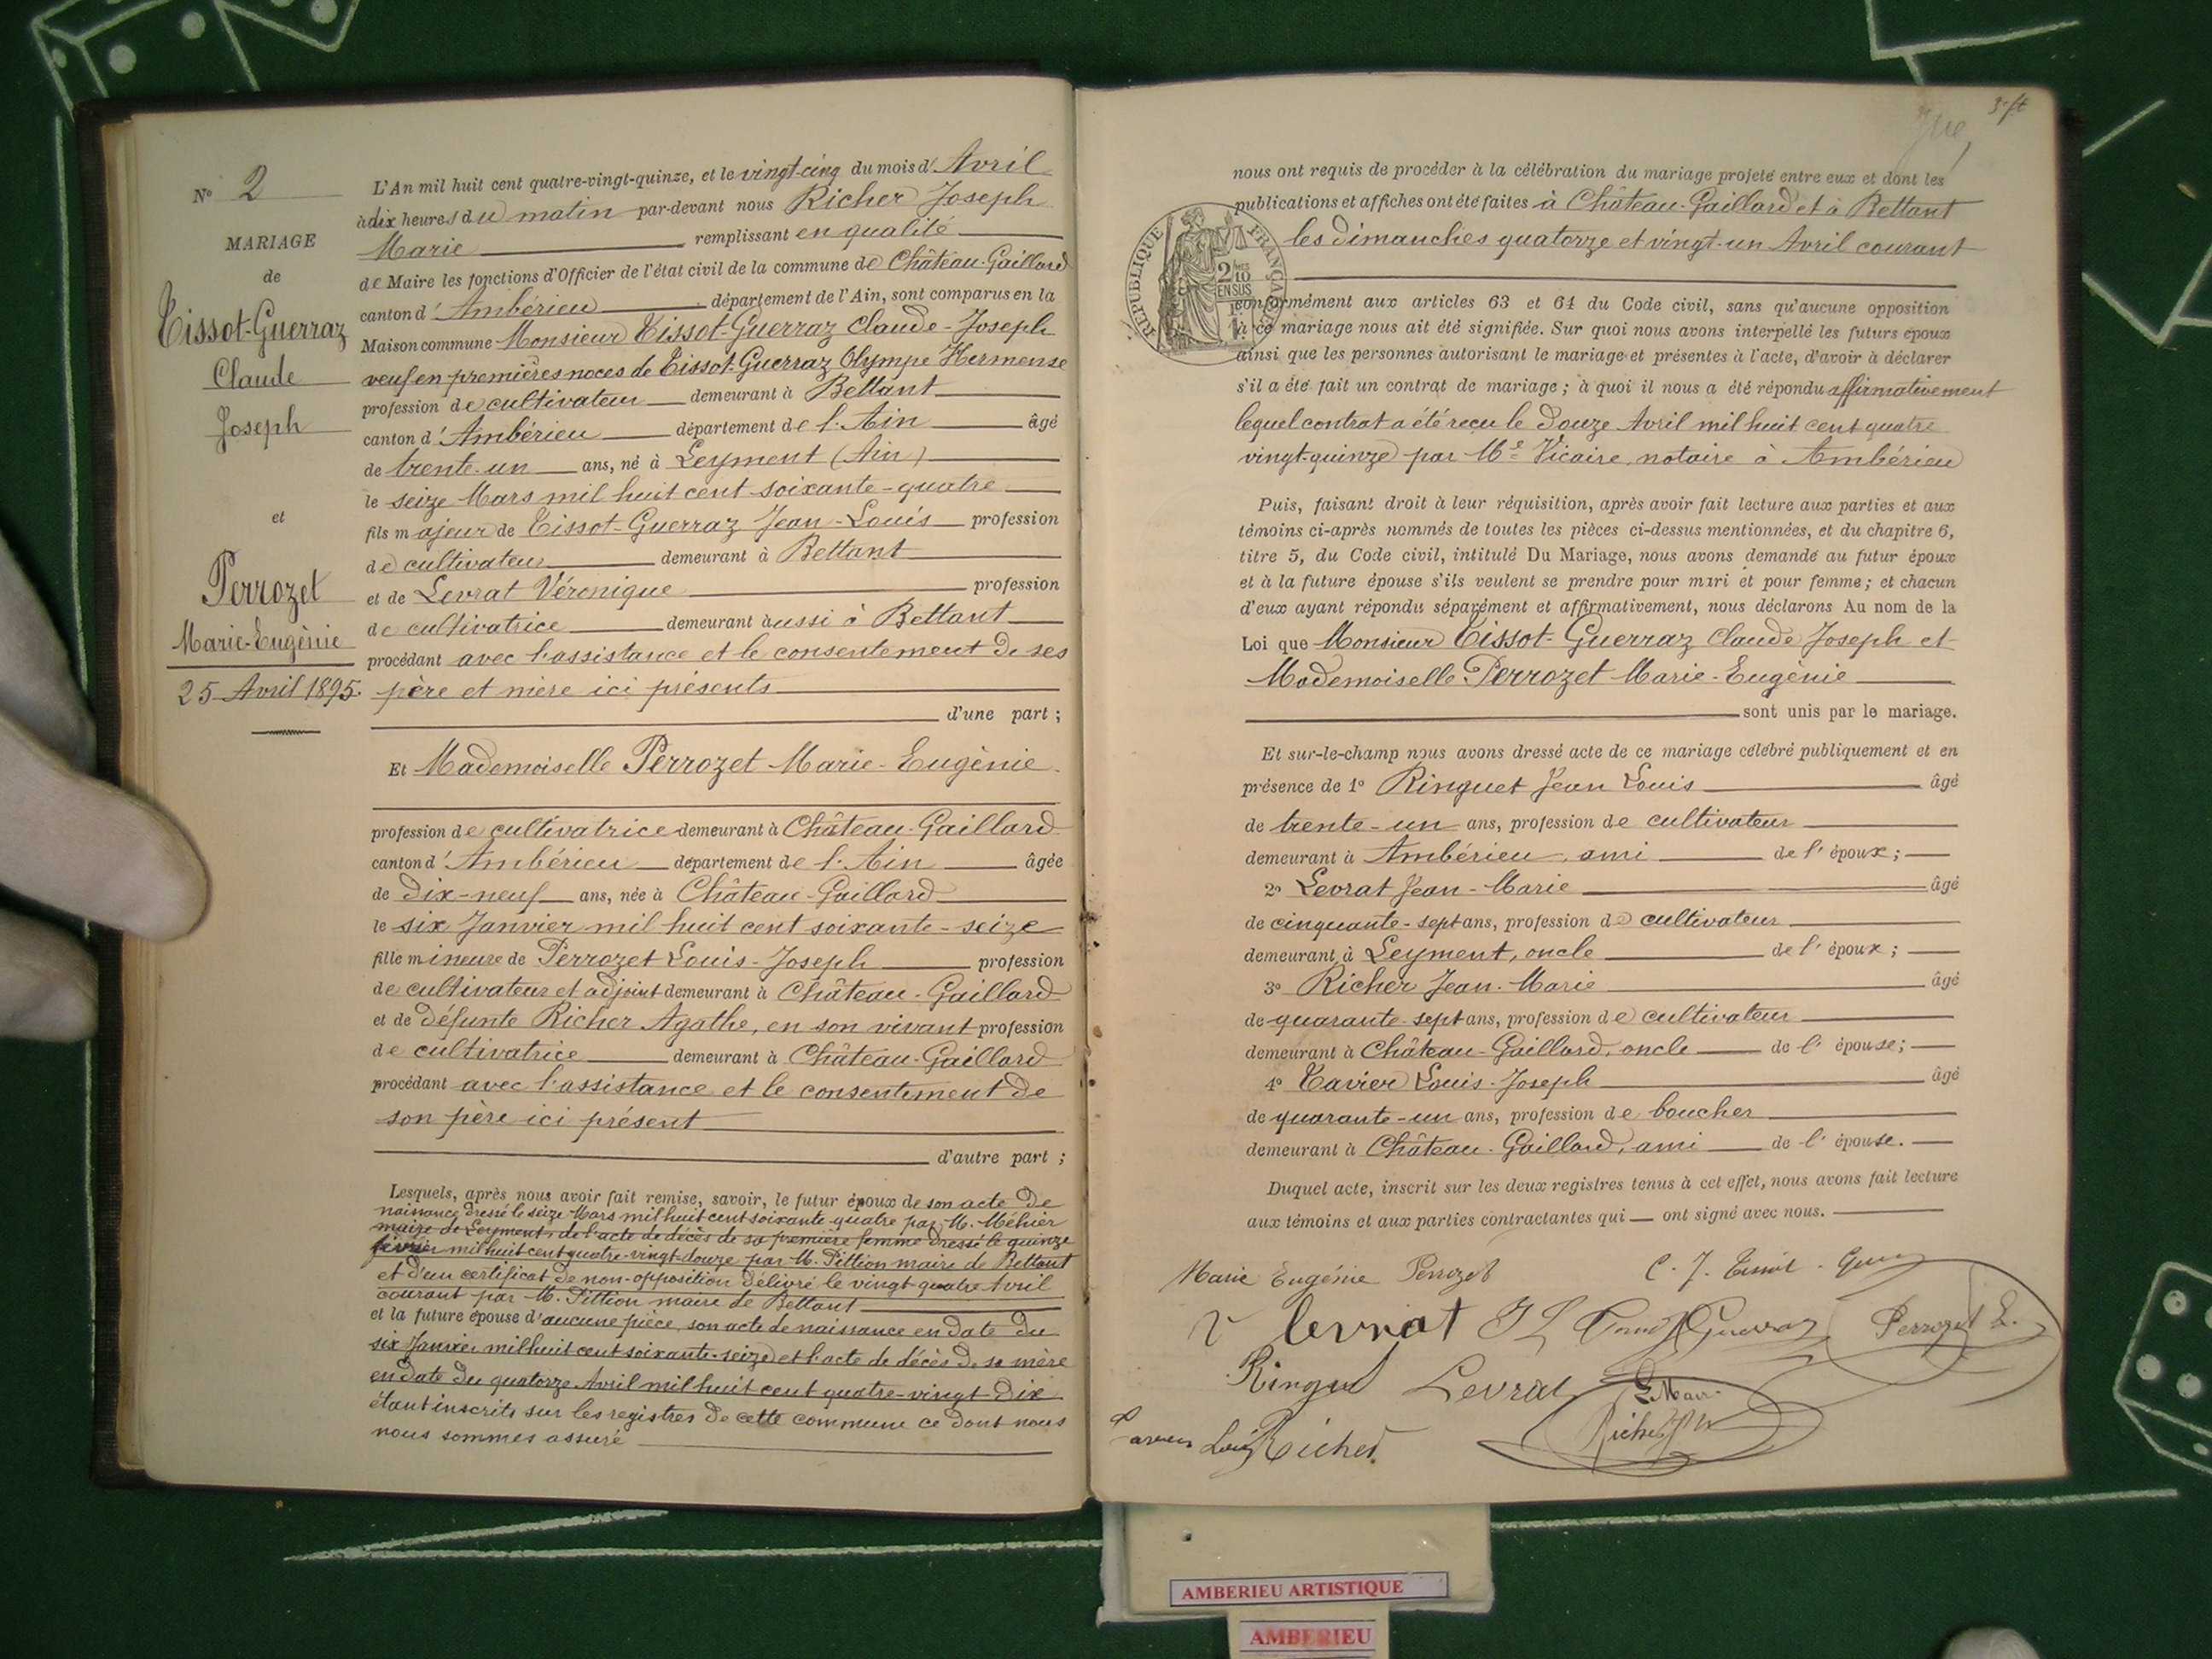 N° 2
MARIAGE
de
Tissot-Guerraz
Claude
Joseph
et
Perrozet
Marie-Eugènie
25 Avril 1895.
L'An mil huit cent quatre-vingt-quinze, et le vingt-cinq du mois d'Avril
à dix heures du matin par-devant nous Richer Joseph
Marie remplissant en qualité
de Maire les fonctions d'Officier de l'état civil de la commune de Château-Gaillard
canton d'Ambérieu département de l'Ain, sont comparus en la
Maison commune Monsieur Tissot-Guerraz Claude-Joseph
veuf en premières noces de Tissot-Guerraz Olympe Hermense
profession de cultivateur demeurant à Bettant
canton d'Ambérieu département de l'Ain âgé
de trente-un ans, né à Leyment (Ain)
le seize Mars mil huit cent soixante-quatre
fils majeur de Tissot-Guerraz Jean-Louis profession
de cultivateur demeurant à Bettant
et de Levrat Véronique profession
de cultivatrice demeurant aussi à Bettant
procédant avec l'assistance et le consentement de ses
père et mère ici présents
d'une part ;
Et Mademoiselle Perrozet Marie-Eugènie
profession de cultivatrice demeurant à Château-Gaillard
canton d'Ambérieu département de l'Ain âgée
de dix-neuf ans, née à Château-Gaillard
le six Janvier mil huit cent soixante-seize
fille mineure de Perrozet Louis-Joseph profession
de cultivateur et adjoint demeurant à Château-Gaillard
et de défunte Richer Agathe, en son vivant profession
de cultivatrice demeurant à Château-Gaillard
procédant avec l'assistance et le consentement de
son père ici présent
d'autre part ;
Lesquels, après nous avoir fait remise, savoir, le futur époux de son acte de
naissance dressé le seize Mars mil huit cent soixante-quatre par M. Méhier
maire de Leyment, de l'acte de décès de sa première femme dressé le quinze
février mil huit cent quatre-vingt-douze par M. Pittion maire de Bettant
et d'un certificat de non-opposition délivré le vingt-quatre Avril
courant par M. Pittion maire de Bettant
et la future épouse d'aucune pièce, son acte de naissance en date du
six Janvier mil huit cent soixante-seize et l'acte de décès de sa mère
en date du quatorze Avril mil huit cent quatre-vingt-dix
étant inscrits sur les registres de cette commune ce dont nous
nous sommes assuré
nous ont requis de procéder à la célébration du mariage projeté entre eux et dont les
publications et affiches ont été faites à Château-Gaillard et à Bettant
les dimanches quatorze et vingt-un Avril courant
RÉPUBLIQUE FRANÇAISE
2
10
EN SUS
conformément aux articles 63 et 64 du Code civil, sans qu'aucune opposition
à ce mariage nous ait été signifiée. Sur quoi nous avons interpellé les futurs époux
ainsi que les personnes autorisant le mariage et présentes à l'acte, d'avoir à déclarer
s'il a été fait un contrat de mariage ; à quoi il nous a été répondu affirmativement
lequel contrat a été reçu le douze Avril mil huit cent quatre
vingt-quinze par Me Vicaire notaire à Ambérieu
Puis, faisant droit à leur réquisition, après avoir fait lecture aux parties et aux
témoins ci-après nommés de toutes les pièces ci-dessus mentionnées, et du chapitre 6,
titre 5, du Code civil, intitulé Du Mariage, nous avons demandé au futur époux
et à la future épouse s'ils veulent se prendre pour mari et pour femme ; et chacun
d'eux ayant répondu séparément et affirmativement, nous déclarons Au nom de la
Loi que Monsieur Tissot-Guerraz Claude Joseph et
Mademoiselle Perrozet Marie-Eugènie
sont unis par le mariage.
Et sur-le-champ nous avons dressé acte de ce mariage célébré publiquement et en
présence de 1° Ringuet Jean Louis âgé
de trente-un ans, profession de cultivateur
demeurant à Ambérieu, ami de l'époux ;
2° Levrat Jean-Marie âgé
de cinquante-sept ans, profession de cultivateur
demeurant à Leyment, oncle de l'époux ;
3° Richer Jean-Marie âgé
de quarante-sept ans, profession de cultivateur
demeurant à Château-Gaillard, oncle de l'épouse ;
4° Tavier Louis-Joseph âgé
de quarante-un ans, profession de boucher
demeurant à Château-Gaillard, ami de l'épouse.
Duquel acte, inscrit sur les deux registres tenus à cet effet, nous avons fait lecture
aux témoins et aux parties contractantes qui ont signé avec nous.
Marie Eugénie Perrozet
C. J. Tissot-
V levrat J L Guerraz Perrozet L.
Levrat
Le Maire
Richer JM
Louis Richer
AMBERIEU ARTISTIQUE
AMBERIEU